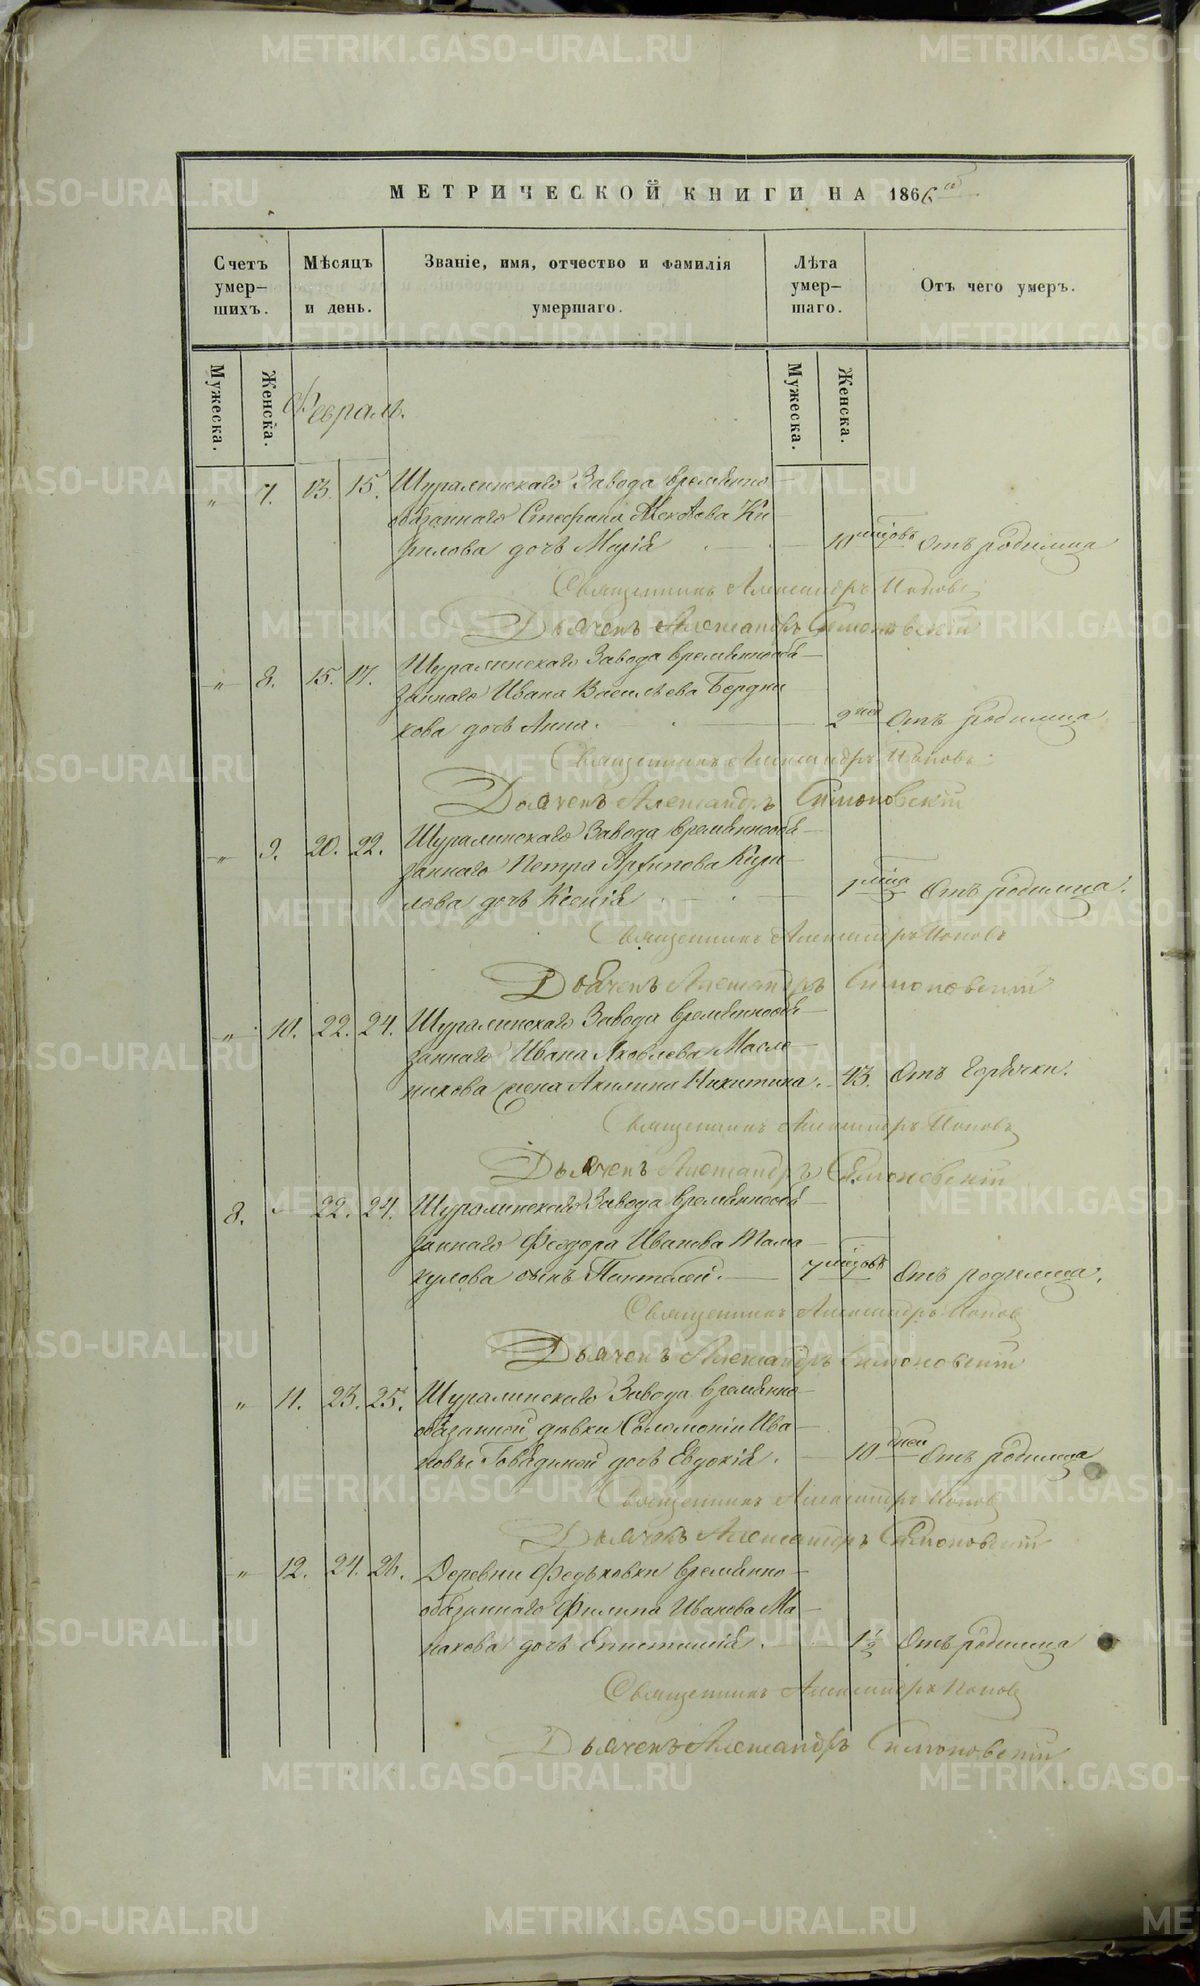 МЕТРИЧЕСКОЙ КНИГИ НА 1866 год
Счетъ умер-шихъ.
Мѣсяцъ и день.
Званіе, имя, отчество и фамилія умершаго.
Лѣта умер-шаго.
Отъ чего умеръ.
Мужеска.
Женска.
Мужеска.
Женска.
Февраль.
„ 7. 13. 15. Шуралинскаго Завода временно
обязаннаго Стефана Ки
рилова дочь Марія 10 мѣсцовъ Отъ родимца
Священникъ Александръ Поповъ
Дьячекъ Александръ Симоновскій
„ 8. 15. 17. Шуралинскаго Завода временнообя
заннаго Ивана Васильева Бердни
кова дочь Анна. 2 нед Отъ родимца
Священникъ Александръ Поповъ
Дьячекъ Александръ Симоновскій
„ 9. 20. 22. Шуралинскаго Завода временнообя
заннаго Петра Архипова Кири
лова дочь Ксенія 1 мѣсца Отъ родимца.
Священникъ Александръ Поповъ
Дьячекъ Александръ Симоновскій
„ 10. 22. 24. Шуралинскаго Завода временнообя
заннаго Ивана Яковлева Масле
никова жена Акилина Никитина. 43. Отъ горячки.
Священникъ Александръ Поповъ
Дьячекъ Александръ Симоновскій
8. „ 22. 24. Шуралинскаго Завода временнообя
заннаго Феодора Иванова Мама
кулова сынъ Пантелей. 7 мѣсцовъ Отъ родимца.
Священникъ Александръ Поповъ
Дьячекъ Александръ Симоновскій
„ 11. 23. 25. Шуралинскаго Завода временно
обязанной дѣвки Соломоніи Ива
новы дочь Евдокія. 10 дней Отъ родимца
Священникъ Александръ Поповъ
Дьячекъ Александръ Симоновскій
„ 12. 24. 26. Деревни Федьковки временно
обязаннаго Филипа Иванова Ма
лахова дочь Епистимія. 1 1/2 Отъ родимца
Священникъ Александръ Поповъ
Дьячекъ Александръ Симоновскій
METRIKI.GASO-URAL.RU